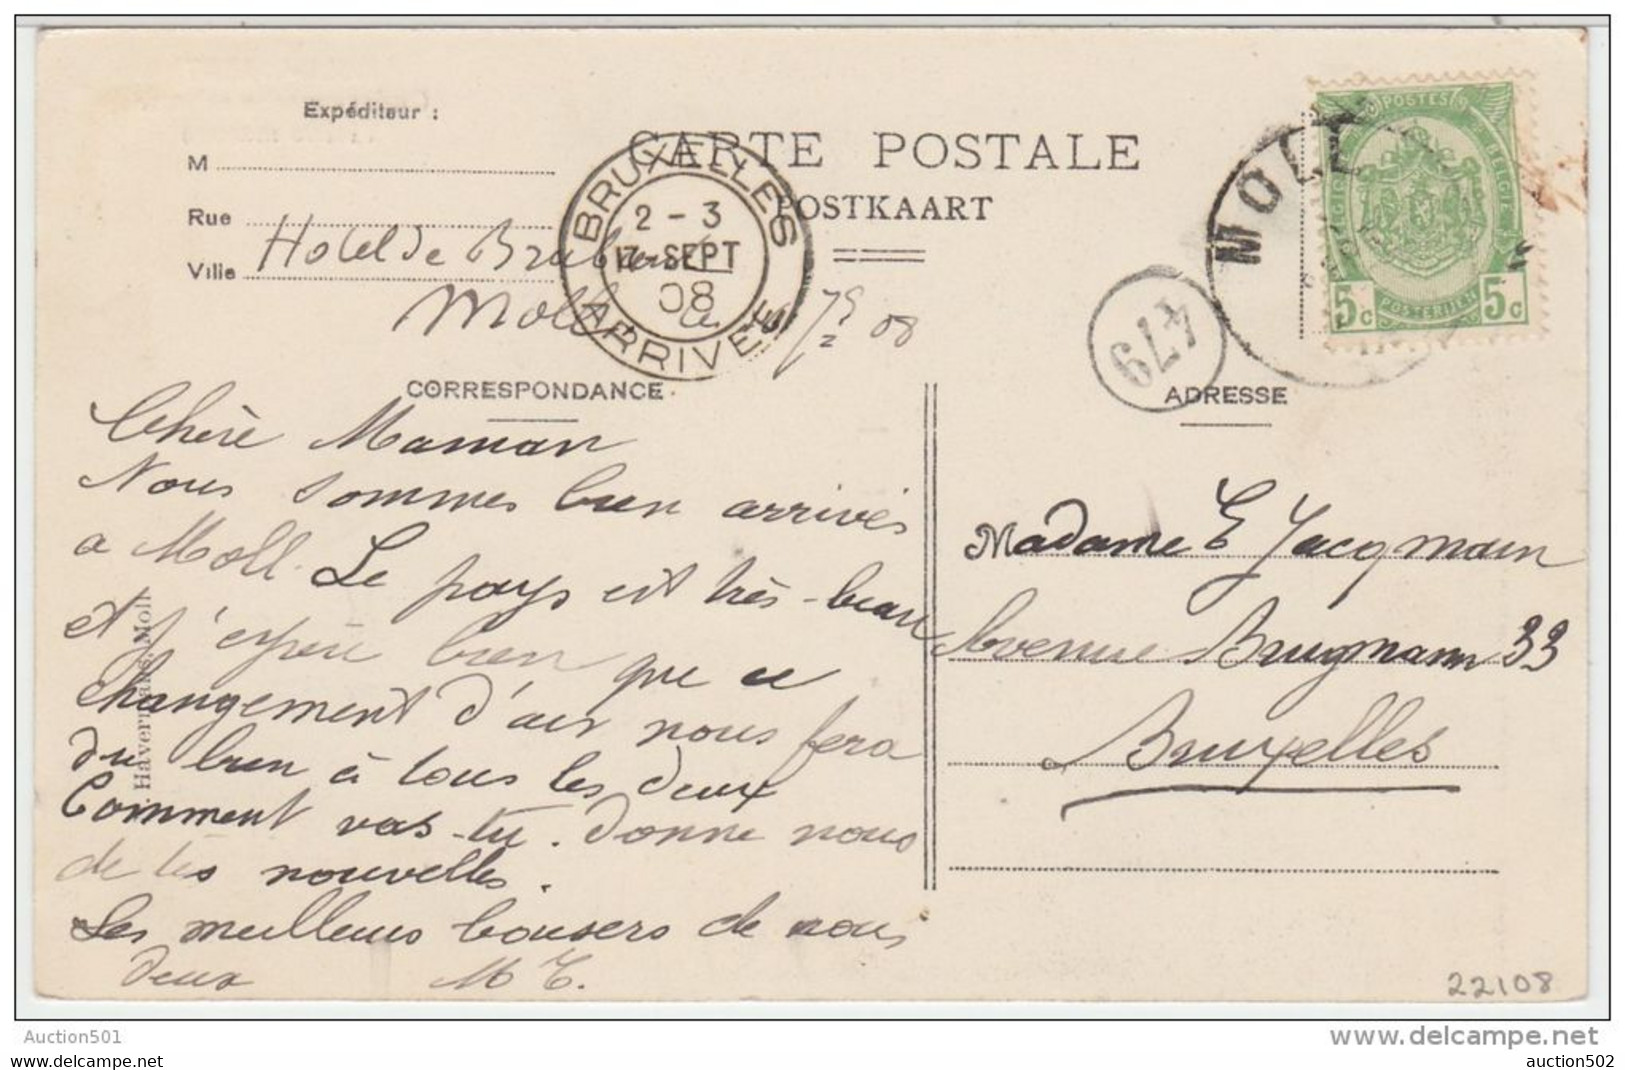 Expéditeur :
M
Rue
Ville
Hotel de Brabant
Moll
08
CARTE POSTALE
POSTKAART
BRUXELLES
2 - 3
17 SEPT
08
ARRIVEE
MOLL
479
POSTES
BELGIË
BELGIQUE
5c
POSTERIJEN
5c
CORRESPONDANCE
ADRESSE
Chère Maman
Nous sommes bien arrivés
a Moll. Le pays est très-beau
et j'espère bien que ce
changement d'air nous fera
du bien à tous les deux
Comment vas-tu. Donne nous
de tes nouvelles.
Les meilleurs bousers de nous
deux M E.
Havermans, Moll.
Madame E Jacqmain
Avenue Brugmann 33
Bruxelles
22108
Auction501
www.delcampe.net
www.delcampe.net
auction502